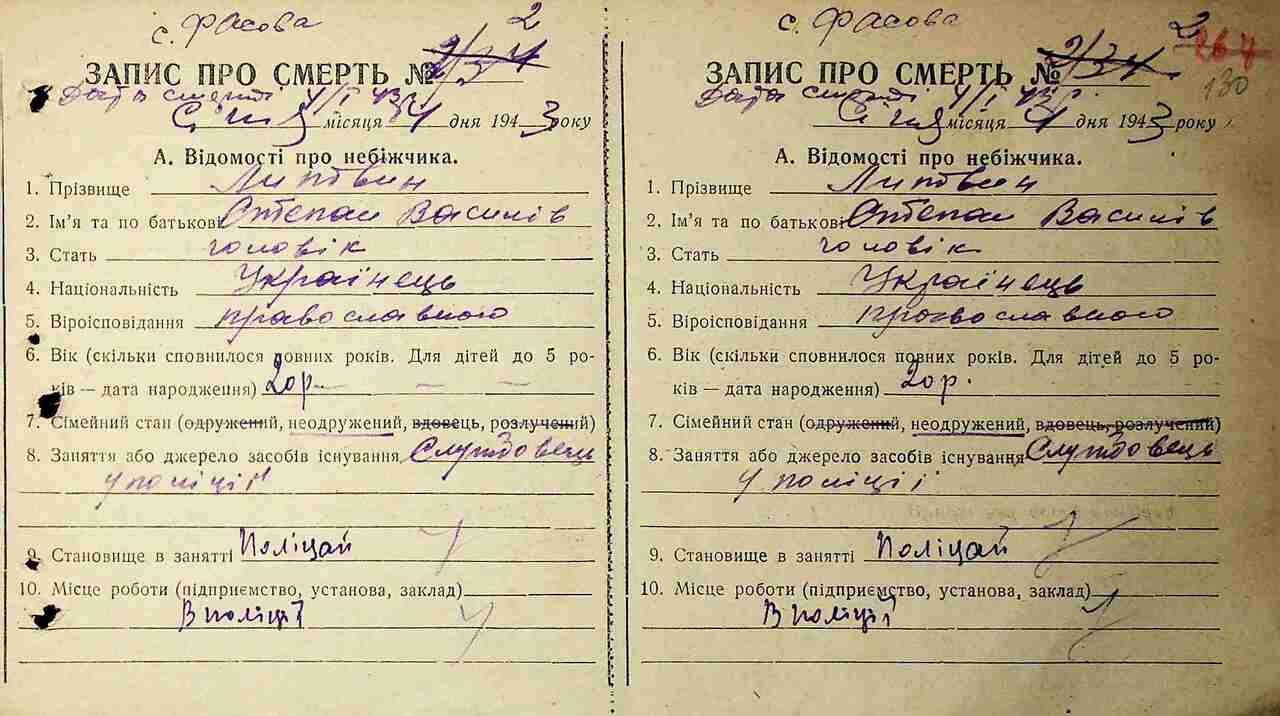 с. Фасова 2
2/34
ЗАПИС ПРО СМЕРТЬ №
Дата смерті 4/I 43 р.
Січня місяця 4 дня 1943 року
А. Відомості про небіжчика.
1. Прізвище Литвин
2. Ім’я та по батькові Степан Василів
3. Стать чоловік
4. Національність Українець
5. Віроісповідання православного
6. Вік (скільки сповнилося повних років. Для дітей до 5 ро-
ків — дата народження) 20 р. — — —
7. Сімейний стан (одружений, неодружений, вдовець, розлучений)
8. Заняття або джерело засобів існування Службовець
у поліції
9. Становище в занятті Поліцай
10. Місце роботи (підприємство, установа, заклад)
В поліції
с. Фасова 2
2/34 267
ЗАПИС ПРО СМЕРТЬ № 130
Дата смерті 4/I 43 р.
Січня місяця 4 дня 1943 року
А. Відомості про небіжчика.
1. Прізвище Литвин
2. Ім’я та по батькові Степан Василів
3. Стать чоловік
4. Національність Українець
5. Віроісповідання православного
6. Вік (скільки сповнилося повних років. Для дітей до 5 ро-
ків — дата народження) 20 р.
7. Сімейний стан (одружений, неодружений, вдовець, розлучений)
8. Заняття або джерело засобів існування Службовець
у поліції
9. Становище в занятті Поліцай
10. Місце роботи (підприємство, установа, заклад)
В поліції